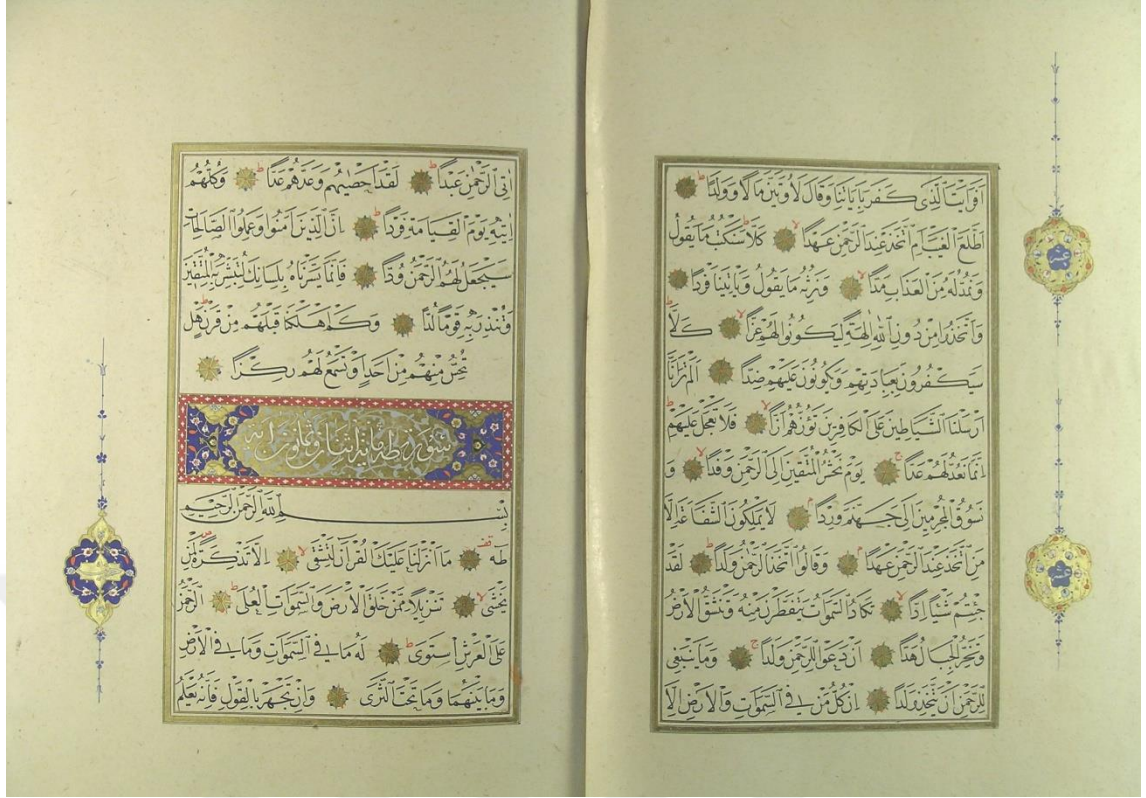 اَفَرَاَيْتَ الَّذِى كَفَرَ بِاٰيَاتِنَا وَقَالَ لَاُوتَيَنَّ مَالًا وَوَلَدًا
اَطَّلَعَ الْغَيْبَ اَمِ اتَّخَذَ عِنْدَ الرَّحْمٰنِ عَهْدًا كَلَّا سَنَكْتُبُ مَا يَقُولُ
وَنَمُدُّ لَهُ مِنَ الْعَذَابِ مَدًّا وَنَرِثُهُ مَا يَقُولُ وَيَاْتِينَا فَرْدًا
وَاتَّخَذُوا مِنْ دُونِ اللّٰهِ اٰلِهَةً لِيَكُونُوا لَهُمْ عِزًّا كَلَّا
سَيَكْفُرُونَ بِعِبَادَتِهِمْ وَيَكُونُونَ عَلَيْهِمْ ضِدًّا اَلَمْ تَرَ اَنَّا
اَرْسَلْنَا الشَّيَاطِينَ عَلَى الْكَافِرِينَ تَؤُزُّهُمْ اَزًّا فَلَا تَعْجَلْ عَلَيْهِمْ
اِنَّمَا نَعُدُّ لَهُمْ عَدًّا يَوْمَ نَحْشُرُ الْمُتَّقِينَ اِلَى الرَّحْمٰنِ وَفْدًا وَ
نَسُوقُ الْمُجْرِمِينَ اِلٰى جَهَنَّمَ وِرْدًا لَا يَمْلِكُونَ الشَّفَاعَةَ اِلَّا
مَنِ اتَّخَذَ عِنْدَ الرَّحْمٰنِ عَهْدًا وَقَالُوا اتَّخَذَ الرَّحْمٰنُ وَلَدًا لَقَدْ
جِئْتُمْ شَيْئًا اِدًّا تَكَادُ السَّمٰوَاتُ يَتَفَطَّرْنَ مِنْهُ وَتَنْشَقُّ الْاَرْضُ
وَتَخِرُّ الْجِبَالُ هَدًّا اَنْ دَعَوْا لِلرَّحْمٰنِ وَلَدًا وَمَا يَنْبَغِى
لِلرَّحْمٰنِ اَنْ يَتَّخِذَ وَلَدًا اِنْ كُلُّ مَنْ فِى السَّمٰوَاتِ وَالْاَرْضِ اِلَّا
عشر
عشر
اٰتِى الرَّحْمٰنِ عَبْدًا لَقَدْ اَحْصٰيهُمْ وَعَدَّهُمْ عَدًّا وَكُلُّهُمْ
اٰتِيهِ يَوْمَ الْقِيَامَةِ فَرْدًا اِنَّ الَّذِينَ اٰمَنُوا وَعَمِلُوا الصَّالِحَاتِ
سَيَجْعَلُ لَهُمُ الرَّحْمٰنُ وُدًّا فَاِنَّمَا يَسَّرْنَاهُ بِلِسَانِكَ لِتُبَشِّرَ بِهِ الْمُتَّقِينَ
وَتُنْذِرَ بِهِ قَوْمًا لُدًّا وَكَمْ اَهْلَكْنَا قَبْلَهُمْ مِنْ قَرْنٍ هَلْ
تُحِسُّ مِنْهُمْ مِنْ اَحَدٍ اَوْ تَسْمَعُ لَهُمْ رِكْزًا
سورة طه مائة واثنان وثلاثون اية
بِسْمِ اللّٰهِ الرَّحْمٰنِ الرَّحِيمِ
طٰهٰ مَا اَنْزَلْنَا عَلَيْكَ الْقُرْاٰنَ لِتَشْقٰى اِلَّا تَذْكِرَةً لِمَنْ
يَخْشٰى تَنْزِيلًا مِمَّنْ خَلَقَ الْاَرْضَ وَالسَّمٰوَاتِ الْعُلٰى اَلرَّحْمٰنُ
عَلَى الْعَرْشِ اسْتَوٰى لَهُ مَا فِى السَّمٰوَاتِ وَمَا فِى الْاَرْضِ
وَمَا بَيْنَهُمَا وَمَا تَحْتَ الثَّرٰى وَاِنْ تَجْهَرْ بِالْقَوْلِ فَاِنَّهُ يَعْلَمُ